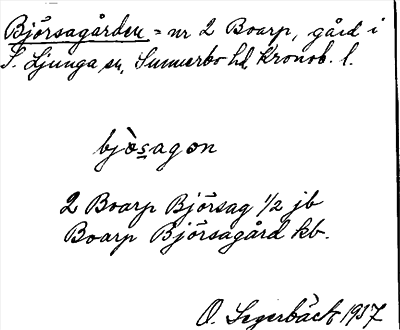 Björsagården = nr 2 Boarp, gård i
S. Ljunga sn, Sunnerbo hd, Kronob. l.
bjòsagon
2 Boarp Björsag 1/2 jb
Boarp Björsagård kb.
O. Segerbäck 1937